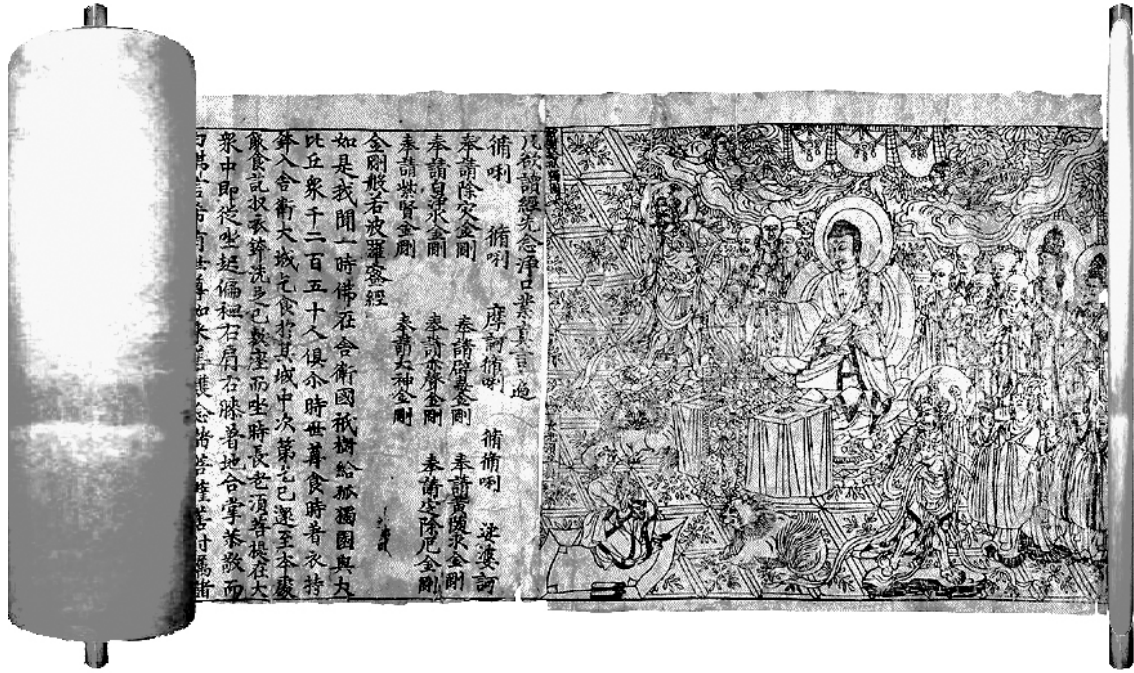 凡欲讀經先念淨口業真言一遍
脩唎 脩唎 摩訶脩唎 脩脩唎 娑婆訶
奉請除灾金剛 奉請辟毒金剛 奉請黃隨求金剛
奉請白淨水金剛 奉請赤聲金剛 奉請定除厄金剛
奉請紫賢金剛 奉請大神金剛
金剛般若波羅蜜經
如是我聞一時佛在舍衛國祇樹給孤獨園與大
比丘衆千二百五十人俱尒時世尊食時著衣持
鉢入舍衛大城乞食於其城中次第乞已還至本處
飯食訖收衣鉢洗足已敷座而坐時長老須菩提在大
衆中即從坐起偏袒右肩右膝著地合掌恭敬而
希有世尊如來善護念諸菩薩善付囑諸